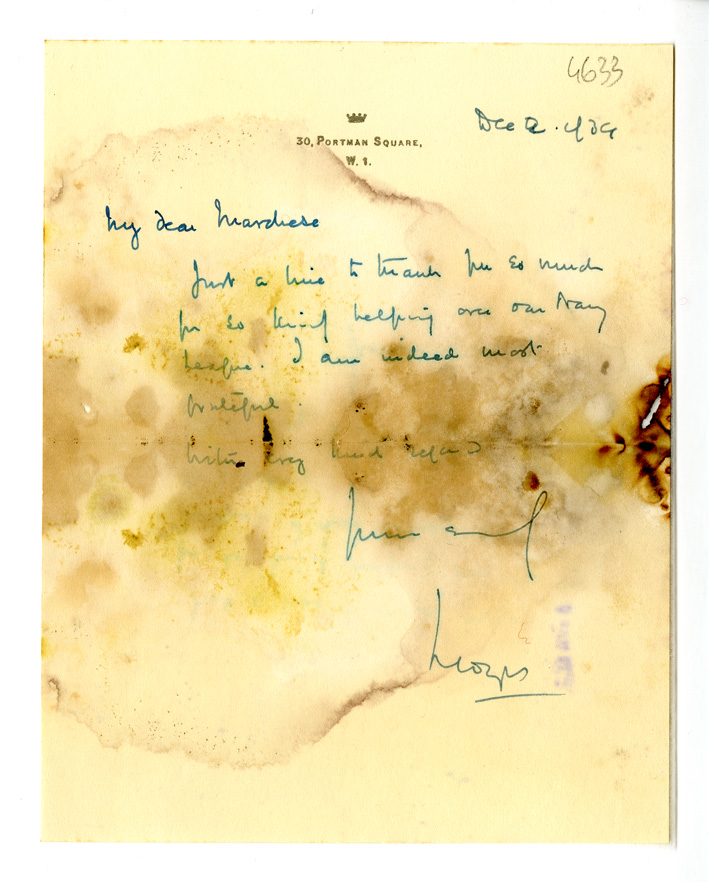 4633
30, PORTMAN SQUARE,
W. 1.
Dec 2.
My dear Marchese
Just a line to thank you so much
for so kindly helping over our Navy
League. I am indeed most
grateful.
With every kind regard